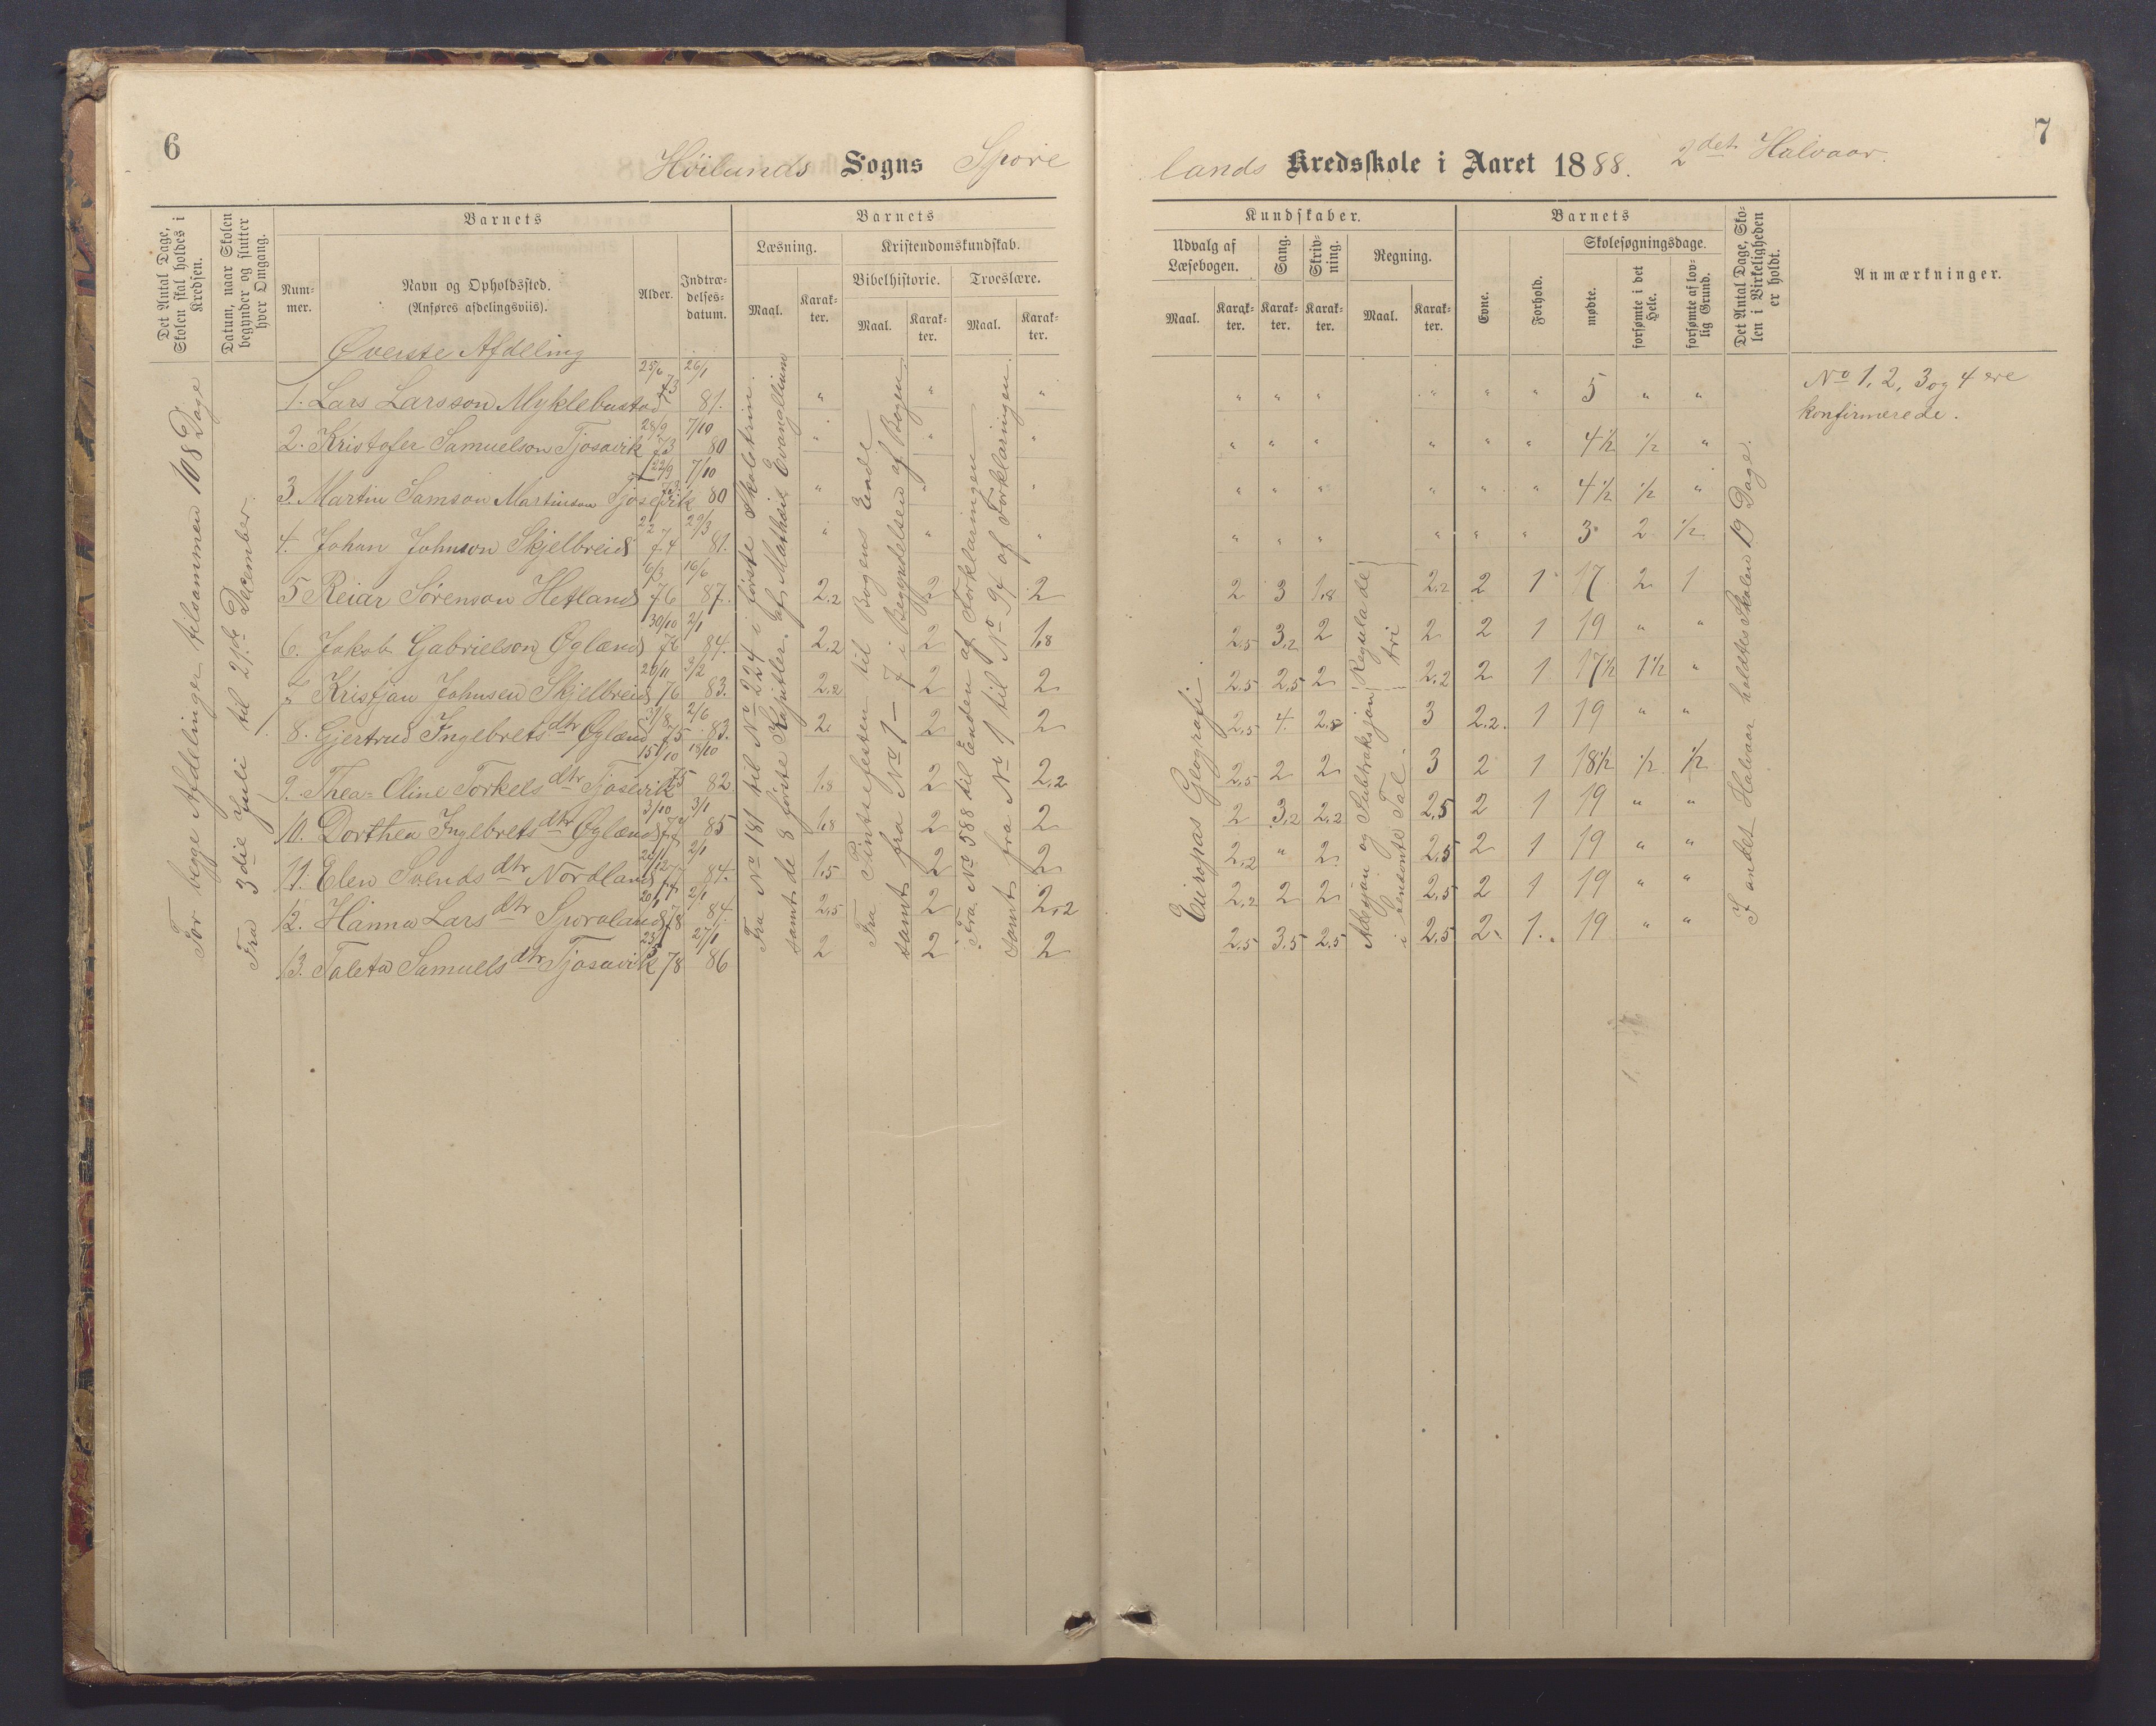 6
Höilands Sogns Spore
Det Antal Dage, Skolen skal holdes i Kredsen.
Datum, naar Skolen begynder og slutter hver Omgang.
Barnets
Num-mer.
Navn og Opholdssted.
(Anføres afdelingsviis).
Alder.
Indtræ-delses-datum.
Barnets
Læsning.
Maal.
Karak-ter.
Kristendomskundskab.
Bibelhistorie.
Maal.
Karak-ter.
Troeslære.
Maal.
Karak-ter.
Øverste Afdeling
For begge Afdelinger tilsammen 108 Dage
Fra 3die Juli til 21de December.
1. Lars Larsson Myklebustad 25/6 73 26/1 81. " " "
2. Kristofer Samuelson Tjosavik 28/9 73 7/10 80 " " "
3. Martin Samson Martinson Tjosevik 22/9 73 7/10 80 " " "
4. Johan Johnson Skjelbreid 74 29/3 81. " " "
5 Reiar Sörenson Hetland 6/3 76 16/6 87. 2,2 2 2
6. Jakob Gabrielson Øglænd 30/10 76 2/1 84. 2,2 2 1,8
7 Kristjan Johnsen Skjelbreid 20/11 76 2/2 83. 2,2 2 2
8. Gjertrud Ingebrets dtr Øglænd 31/8 75 2/6 83. 2 2 2
9. Thea-Oline Torkels dtr Tjosevik 15/10 75 18/10 82 1,8 2 2,2
10. Dorthea Ingebrets dtr Øglænd 3/10 77 3/1 85 1,8 2 2
11. Elen Svends dtr Nordland 77 2/1 84. 1,5 2 2
12. Hanna Lars dtr Sporaland 20/1 78 2/1 84. 2,5 2 2,2
13. Taleta Samuels dtr Tjosavik 78 27/1 86 2 2 2
Fra No 181 til No 224 i første Skoletrin.
samt de 8 første Kapitler af Mathæi Evangelium
Fra Pintsefesten til Bogens Ende
samt fra No 1 - 7 i Begyndelsen af Bogen
Fra No 588 til Enden af Forklaringen
samt fra No 1 til No 94 af Forklaringen
7
lands Kredsskole i Aaret 1888. 2det Halvaar.
Kundskaber.
Udvalg af Læsebogen.
Maal.
Karak-ter.
Sang.
Karak-ter.
Skriv-ning.
Karak-ter.
Regning.
Maal.
Karak-ter.
Barnets
Evne.
Forhold.
Skolesøgningsdage.
mødte.
forsømte i det Hele.
forsømte af lov-lig Grund.
Det Antal Dage, Sko-len i Virkeligheden er holdt.
Anmærkninger.
Europas Geografi.
Regula de tri
Adisjon og Subtraksjon i benævnte Tal
I andet Halvaar holdtes Skolen 19 Dage.
No 1, 2, 3 og 4 ere
konfirmerede.
" " " " " " 5 " "
" " " " " " 4 1/2 1/2 "
" " " " " " 4 1/2 1/2 "
" " " " " " 3 2 1/2
2 3 1,8 2,2 2 1 17 2 1
2,5 3,2 2 2 2 1 19 " "
2,5 2,5 2 2,2 2 1 17 1/2 1 1/2 "
2,5 4 2,8 3 2,2. 1 19 " "
2,5 2 2 3 2 1 18 1/2 1/2 1/2
2 3,2 2,2 2,5 2 1 19 " "
2,2 " 2 2,5 2 1 19 " "
2,2 2 2 2,5 2 1 19 " "
2,5 3,5 2,5 2,5 2 1 19 " "